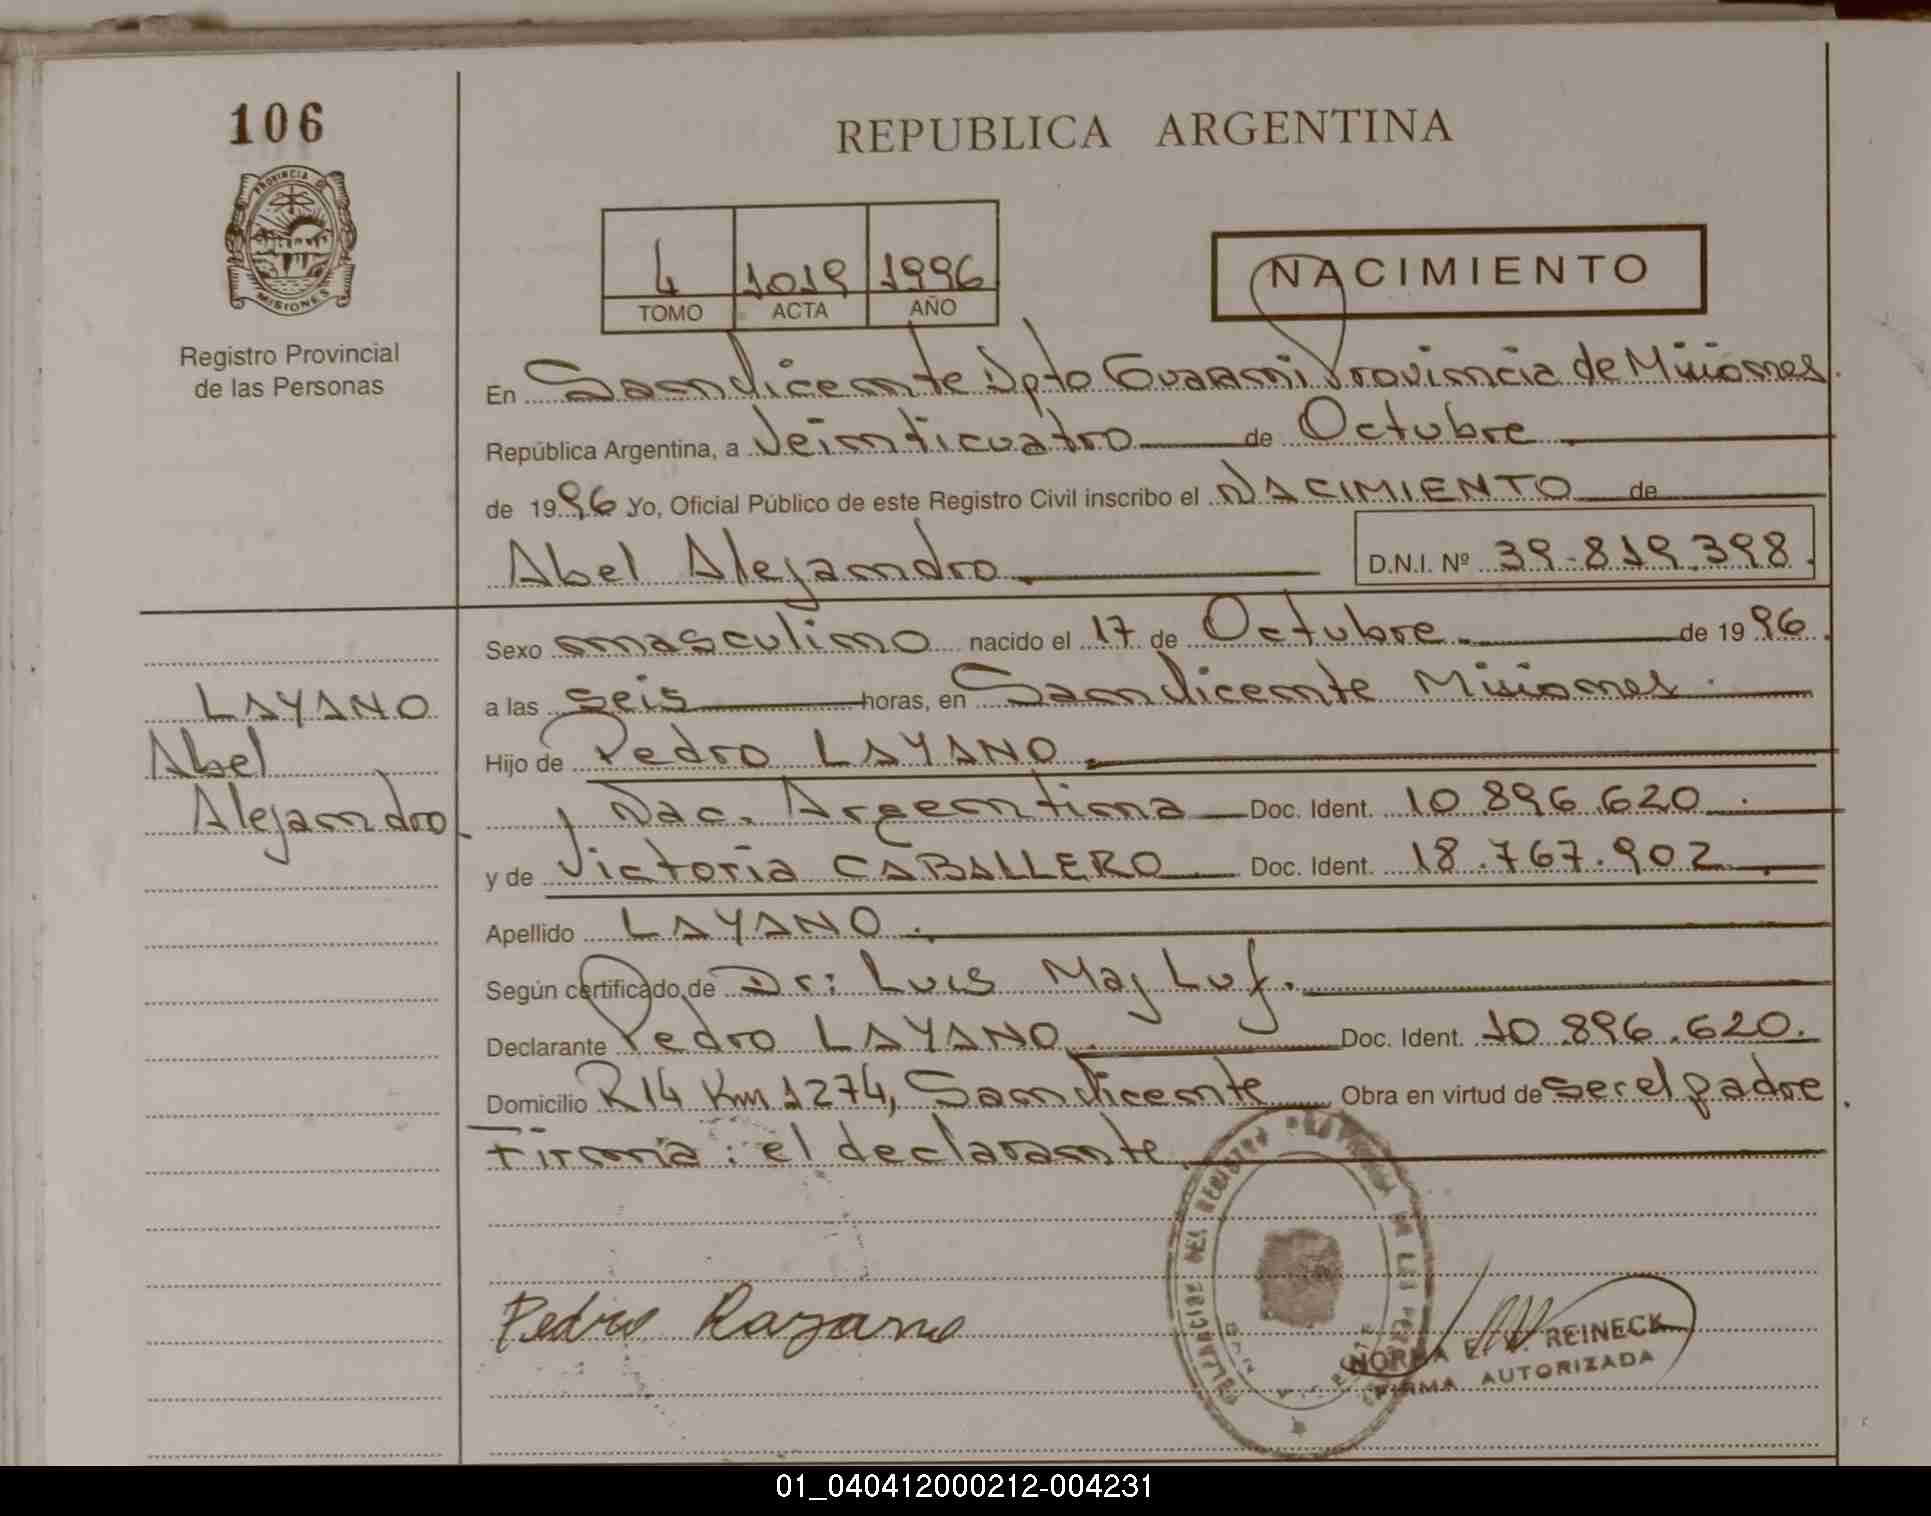 106
REPUBLICA ARGENTINA
PROVINCIA DE
MISIONES
Registro Provincial
de las Personas
4 1019 1996
TOMO ACTA AÑO
NACIMIENTO
En San Vicente Dpto Guarani Provincia de Misiones.
República Argentina, a Veinticuatro de Octubre
de 1996 Yo, Oficial Público de este Registro Civil inscribo el NACIMIENTO de
Abel Alejandro. D.N.I. Nº 39-819.398.
Sexo masculino nacido el 17 de Octubre. de 1996.
LAYANO
Abel
Alejandro.
a las seis horas, en San Vicente Misiones.
Hijo de Pedro LAYANO.
Nac. Argentina Doc. Ident. 10.896.620.
y de Victoria CABALLERO Doc. Ident. 18.767.902.
Apellido LAYANO.
Según certificado de Dr: Luis Maj Luf.
Declarante Pedro LAYANO. Doc. Ident. 10.896.620.
Domicilio R14 Km 1274, San Vicente Obra en virtud de ser el padre.
Firma: el declarante.
DEL REGISTRO DE LAS
Pedro Layano
NORMA E. W. REINECK
FIRMA AUTORIZADA
01_040412000212-004231